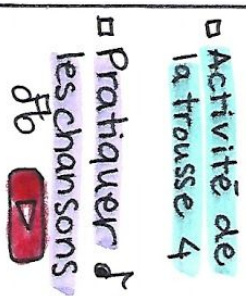 □ Activité de
la trousse 4
□ Pratiquer ♪
les chansons